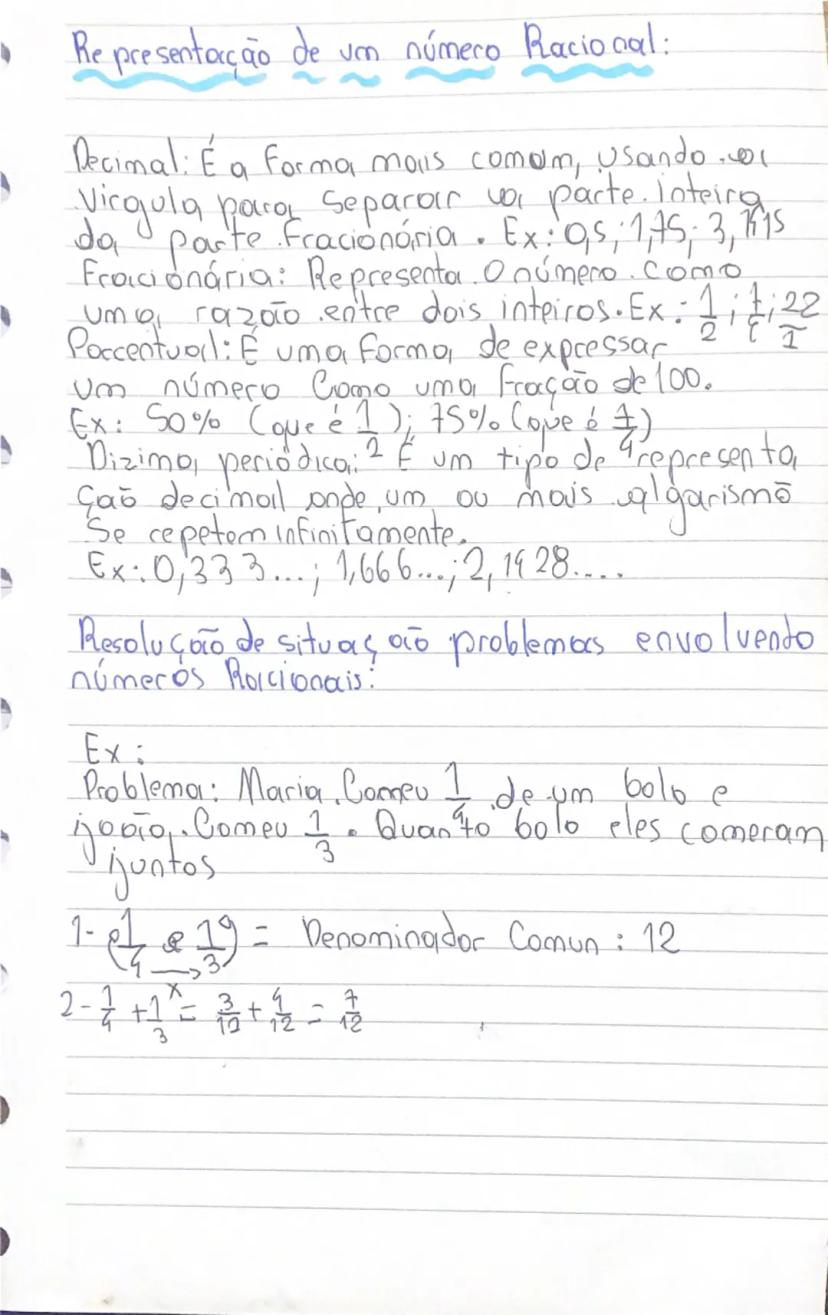 Representação de um número Racional:
Decimal: É a Forma mais comum, usando a
virgula para separar a parte inteira
da parte fracionária. Ex: 0,5; 1,75; 3,1415
Fracionária: Representa o número como
uma razão entre dois inteiros. Ex: 1/2; 22
Porcentual: É uma forma de expressar
um número Como uma fração de 100.
Ex: 50% (que é 1/2); 75% (que é
Dizima periódica: É um tipo de representa
ção decimal onde um ou mais algarismo
Se repetem infinitamente.
Ex: 0,333...; 1,666...; 2,1428....
Resolução de situação problemas envolvendo
números Racionais:
Ex:
Problema: Maria Comeu 1/4 de um bolo e
joão Comeu 1/3. Quanto bolo eles comeram
juntos
1- (1/4 e 1/3) = Denominador Comun: 12
2- 1/4 + 1/3 = 3/12 + 4/12 = 7/12